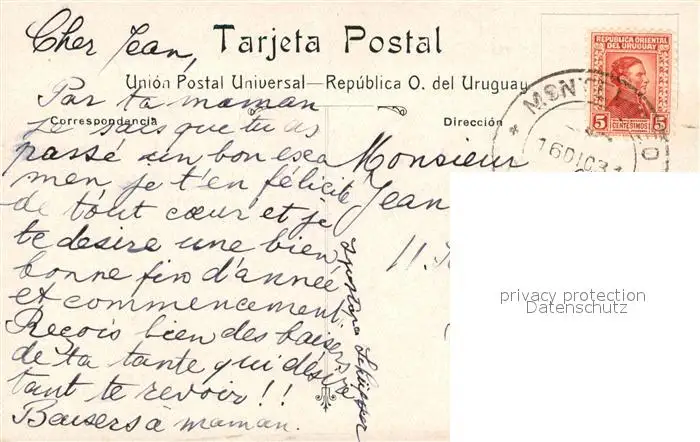 Cher Jean,
Tarjeta Postal
Unión Postal Universal—República O. del Uruguay
Correspondencia
Dirección
Par ta maman
je sais que tu as
passé un bon exa
men, je t'en félicite
de tout cœur et je
te desire une bien
bonne fin d'année
et commencement.
Reçois bien des baisers
de ta tante qui désire
tant te revoir!!
Baisers à maman.
Monsieur
Jean
11.
REPUBLICA ORIENTAL
DEL URUGUAY
5 CENTESIMOS 5
16 DIC 31
privacy protection
Datenschutz